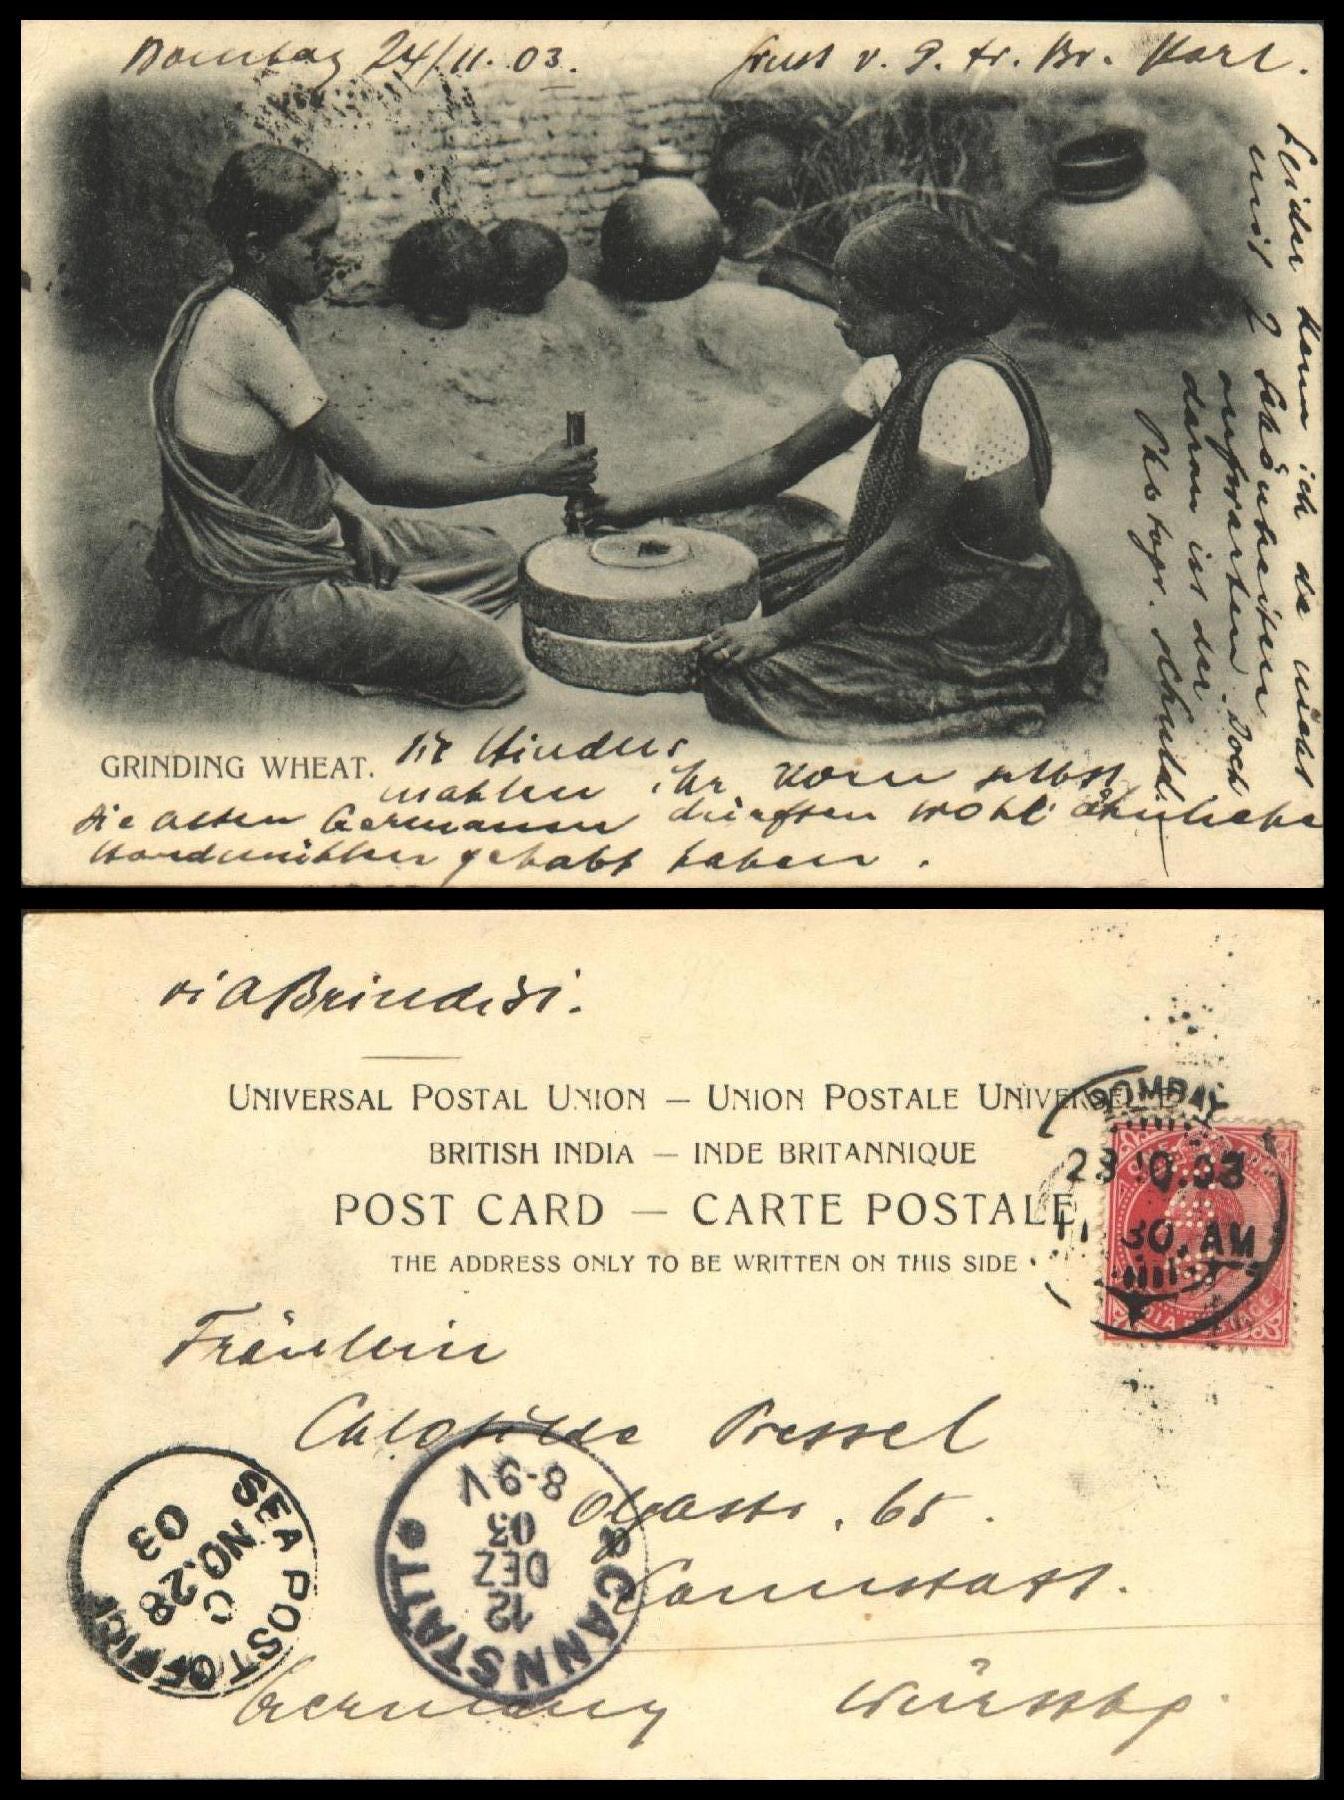 Bombay 24/11. 03.
Gruss v. D. tr. Br. Karl.
Leider kann ich da nicht
mit 2 Schönheiten
aufwarten. Doch
daran ist der
Photogr. schuld.
GRINDING WHEAT.
Die Hindus
mahlen ihr Korn selbst
Die alten Germanen dürften wohl ähnliche
Handmühlen gehabt haben.
via Brindisi.
UNIVERSAL POSTAL UNION — UNION POSTALE UNIVERSELLE
BRITISH INDIA — INDE BRITANNIQUE
POST CARD — CARTE POSTALE
THE ADDRESS ONLY TO BE WRITTEN ON THIS SIDE
BOMBAY
11 30. AM
Fräulein
Clotilde Pressel
Olgastr. 65.
Cannstatt.
Germany Württbg.
SEA POST OFFICE
C
NO. 28
03
CANNSTATT
12
DEZ
03
8-9 V